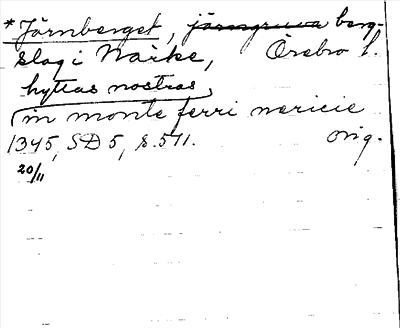 *Järnberget, järngruva berg-
slag i Närke, Örebro l.
hyttas nostras
in monte ferri nericie
1345, SD 5, s. 511. orig.
20/11